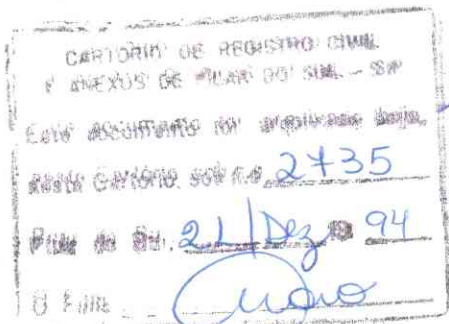 CARTÓRIO DE REGISTRO CIVIL
E ANEXOS DE PILAR DO SUL - SP
Este documento foi arquivado hoje,
neste Cartório sob n.o 2735
Pilar do Sul, 21/Dez 19 94
O